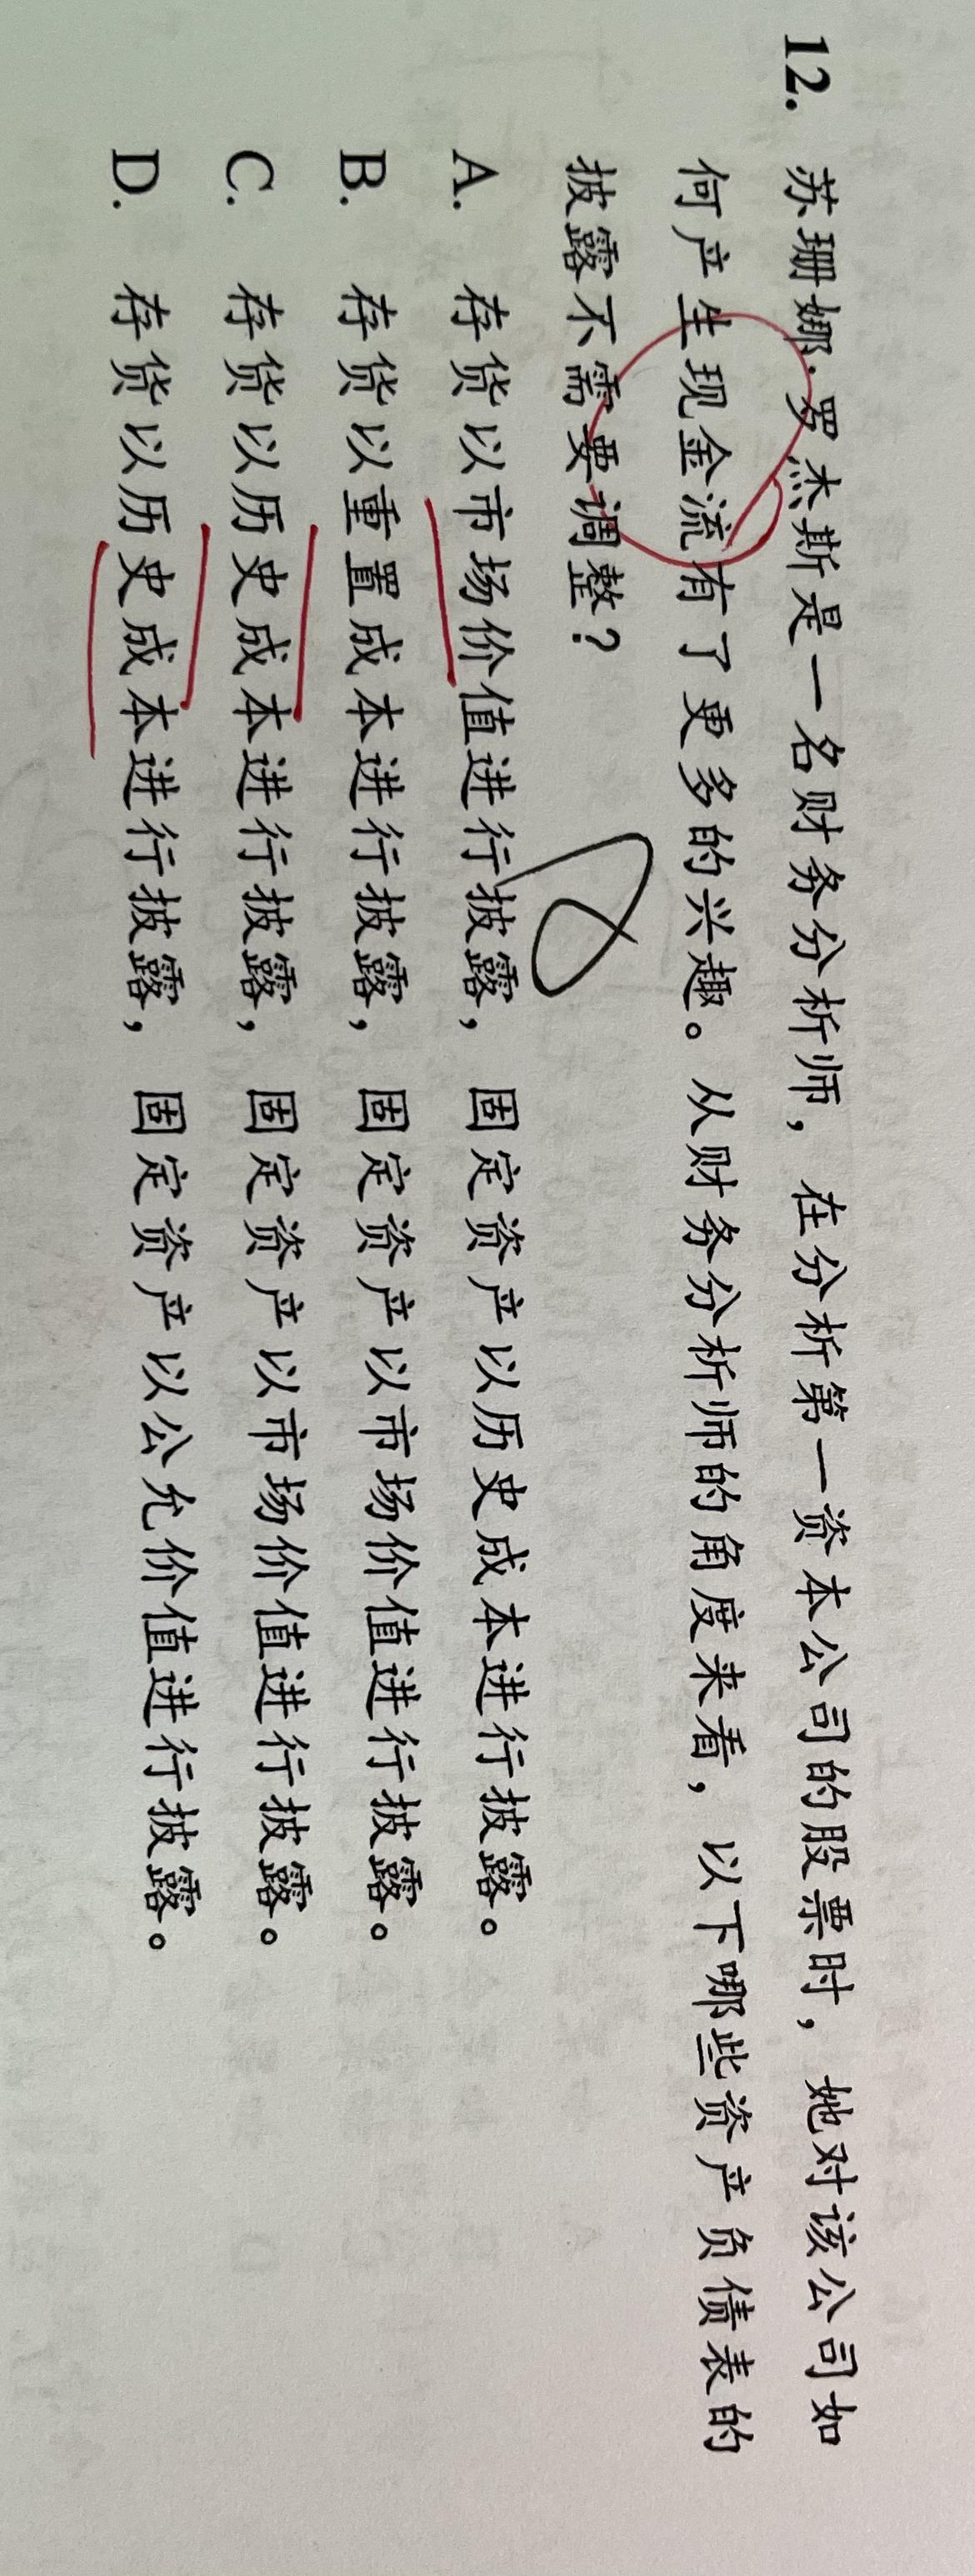 12. 苏珊娜·罗杰斯是一名财务分析师，在分析第一资本公司的股票时，她对该公司如
何产生现金流有了更多的兴趣。从财务分析师的角度来看，以下哪些资产负债表的
披露不需要调整？
A. 存货以市场价值进行披露，固定资产以历史成本进行披露。
B. 存货以重置成本进行披露，固定资产以市场价值进行披露。
C. 存货以历史成本进行披露，固定资产以市场价值进行披露。
D. 存货以历史成本进行披露，固定资产以公允价值进行披露。